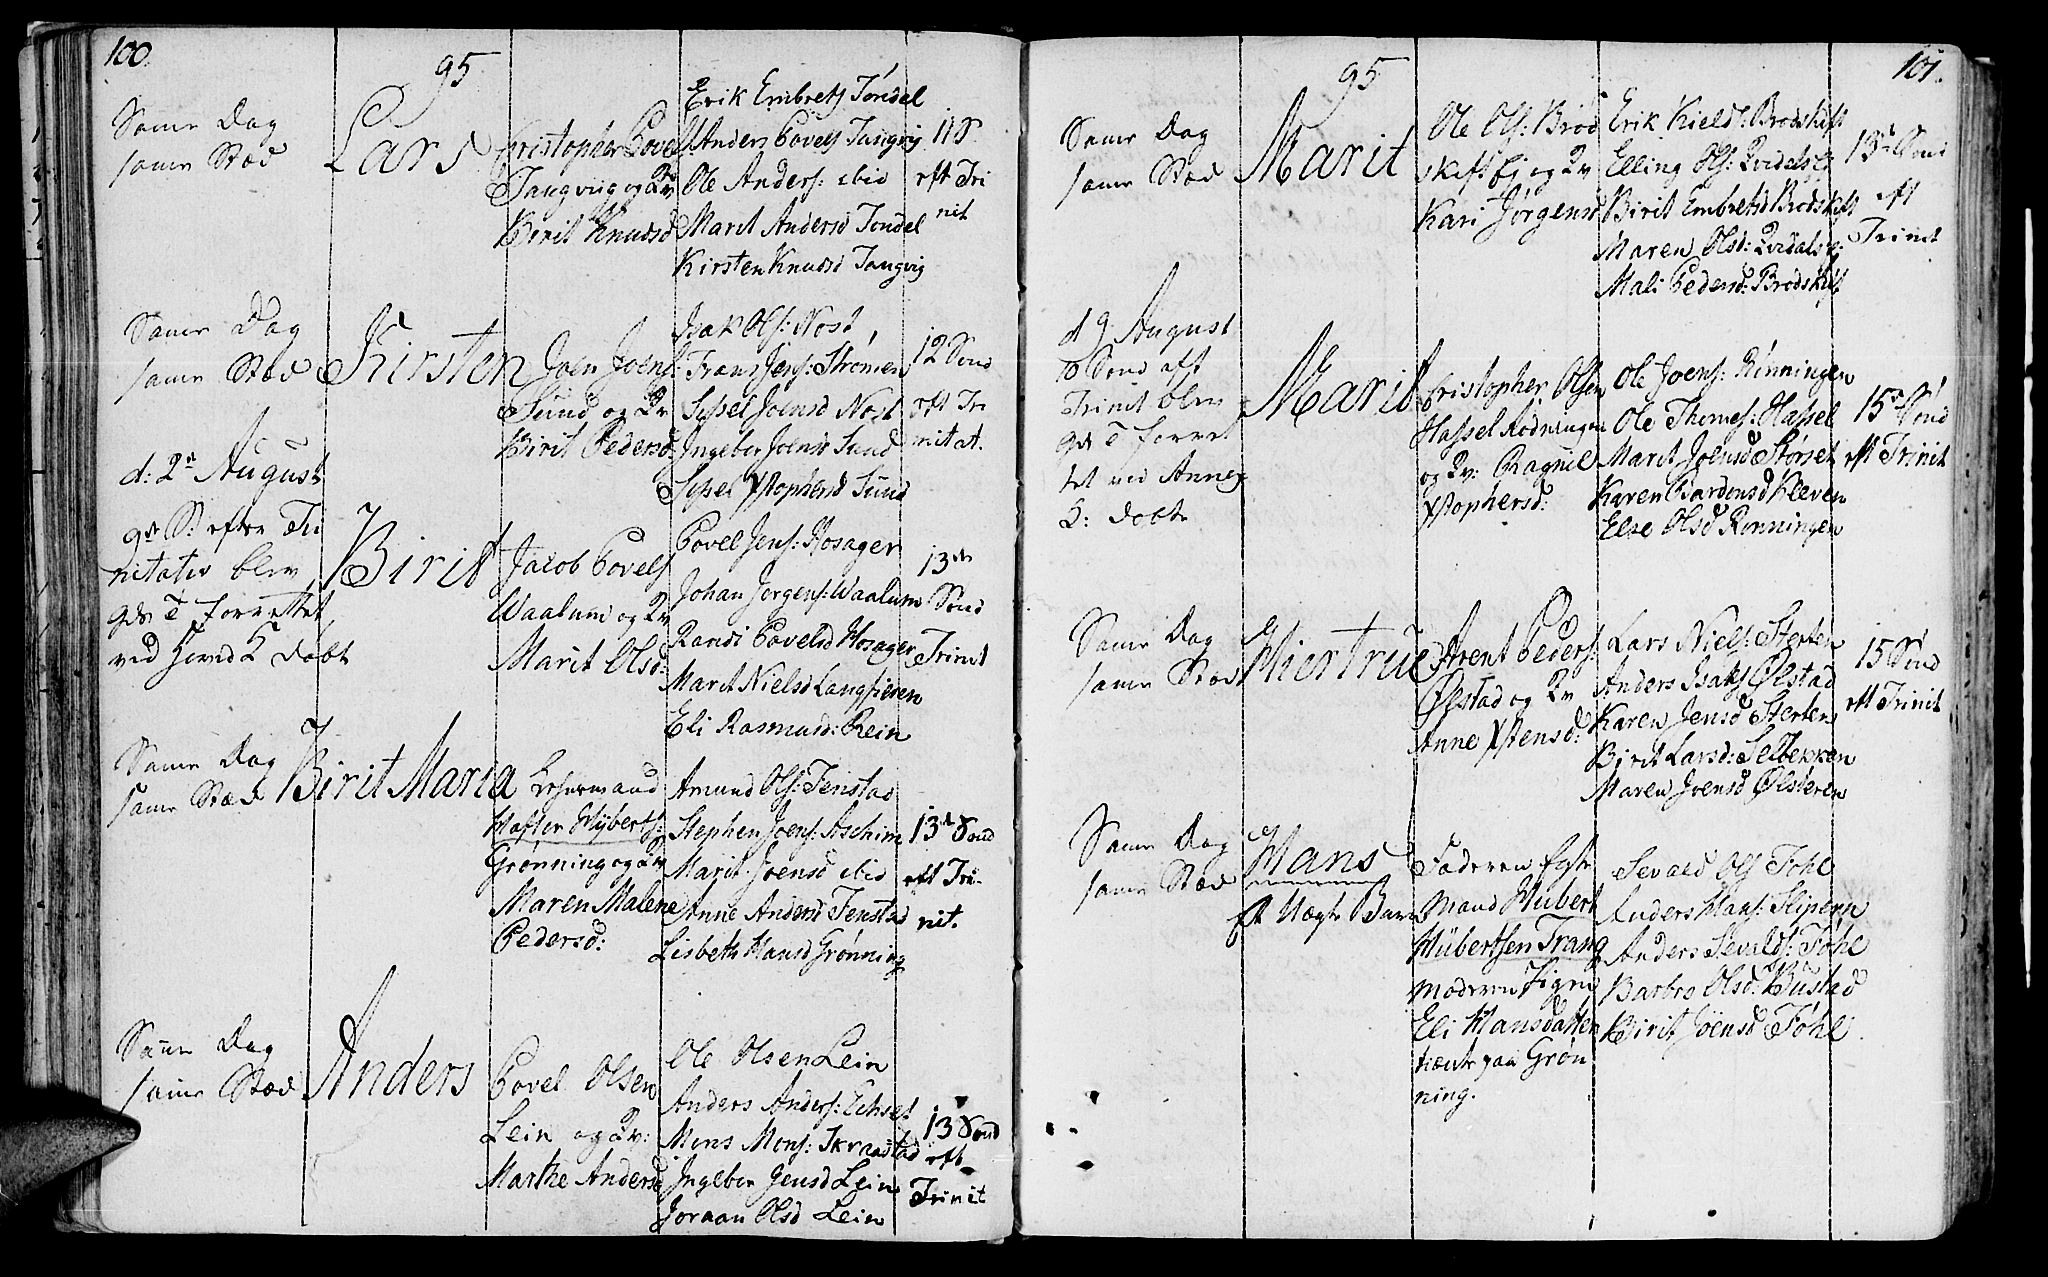 100.
95
Same Dag
same Stæd
Lars
Cristopher Povels:
Tangviig og Qv
Birit Knudsd
Erik Embrets Tøndel
Anders Povels Tangvig
Ole Anders: ibid
Marit Andersd Tøndel
Kirsten Knudsd Tangvig
11 S
eft Tri
nit
Same Dag
same Stæd
Kirsten
Joen Joens:
Sund og Qv
Birit Pedersd:
Isak Ols: Nost
Frans Jens: Strømen
Sissel Joensd Nost
Ingebor Joensd Sund
Sissel Xstophersd Sund
12 Sönd
eft Tri
nitat.
d: 2n August
9de S: efter Tri
nitatis blev
gds T forrettet
ved Hovd K døbt
Birit
Jacob Povels
Waalum og Qv
Marit Olsd:
Povel Jens: Hosager
Johan Jørgens: Waalum
Randi Povelsd Hosager
Marit Nielsd Langsieren
Eli Rasmusd: Rein
13de
Sönd
Trinit
Same Dag
same Stæd
Birit Maria
Grønning og Qv
Maren Malene
Pedersd:
Amund Ols: Fenstad
Stephen Joens: Aschim
Marit Joensd ibid
Anne Andersd Fenstad
Lisbeth Hansd Grønning
13d Sönd
eft Tri-
nit.
Same Dag
same Stæd
Anders
Povel Olsen
Lein og Qv:
Marthe Andersd
Ole Olsen Lein
Anders Anders: Echset
Mons Mons: Skraastad
Ingebor Jensd Lein
Joraan Olsd Lein
13 Sönd
eft
Trinit
101.
95
Same Dag
same Stæd
Marit
Ole Ols: Brød
skift Ej og Qv
Kari Jørgensd
Erik Kields: Brødskift
Elling Ols: Qvidals Ej
Birit Embretsd Brødskift
Maren Olsd: Qvidals Ej
Mali Pedersd: Brødskift
13d Sönd
eft
Trinit
d 9 August
10 Sönd eft
Trinit blev
gds T forret
tet ved Annex
K: døbt
Marit
Cristopher Olsen
Hassel Rødningen
og Qv: Ragnil
Xstophersd:
Ole Joens: Rönningen
Ole Thomes: Hassel
Marit Joensd Størset
Karen Bardonsd Kleven
Else Olsd Rønningen
15d Sönd
eft Trinit
Same Dag
same Stæd
Hiertrue
Arent Peders:
Ølstad og Qv
Anne Xstensd:
Lars Niels: Sterten
Anders Isaks Ølstad
Karen Jensd Sterten
Birit Larsd: Selbekken
Maren Joensd Ølsteren
15 Sönd
eft Trinit
Same Dag
same Stæd
Hans
Et Uægte Barn
Faderen Egte
mand Hubert
Hübertsen Trang
moderen Pigen
Eli Hansdatter
tiente paa Grøn
ning.
Sevald Ols Fohl
Anders Hans: Slipern
Anders Sevalds: Föhl
Barbro Olsd: Büstad
Birit Jöensd Föhl